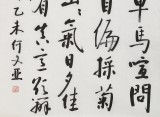 車馬喧問
自偏採菊
山氣日夕佳
有真意欲辭
乙未